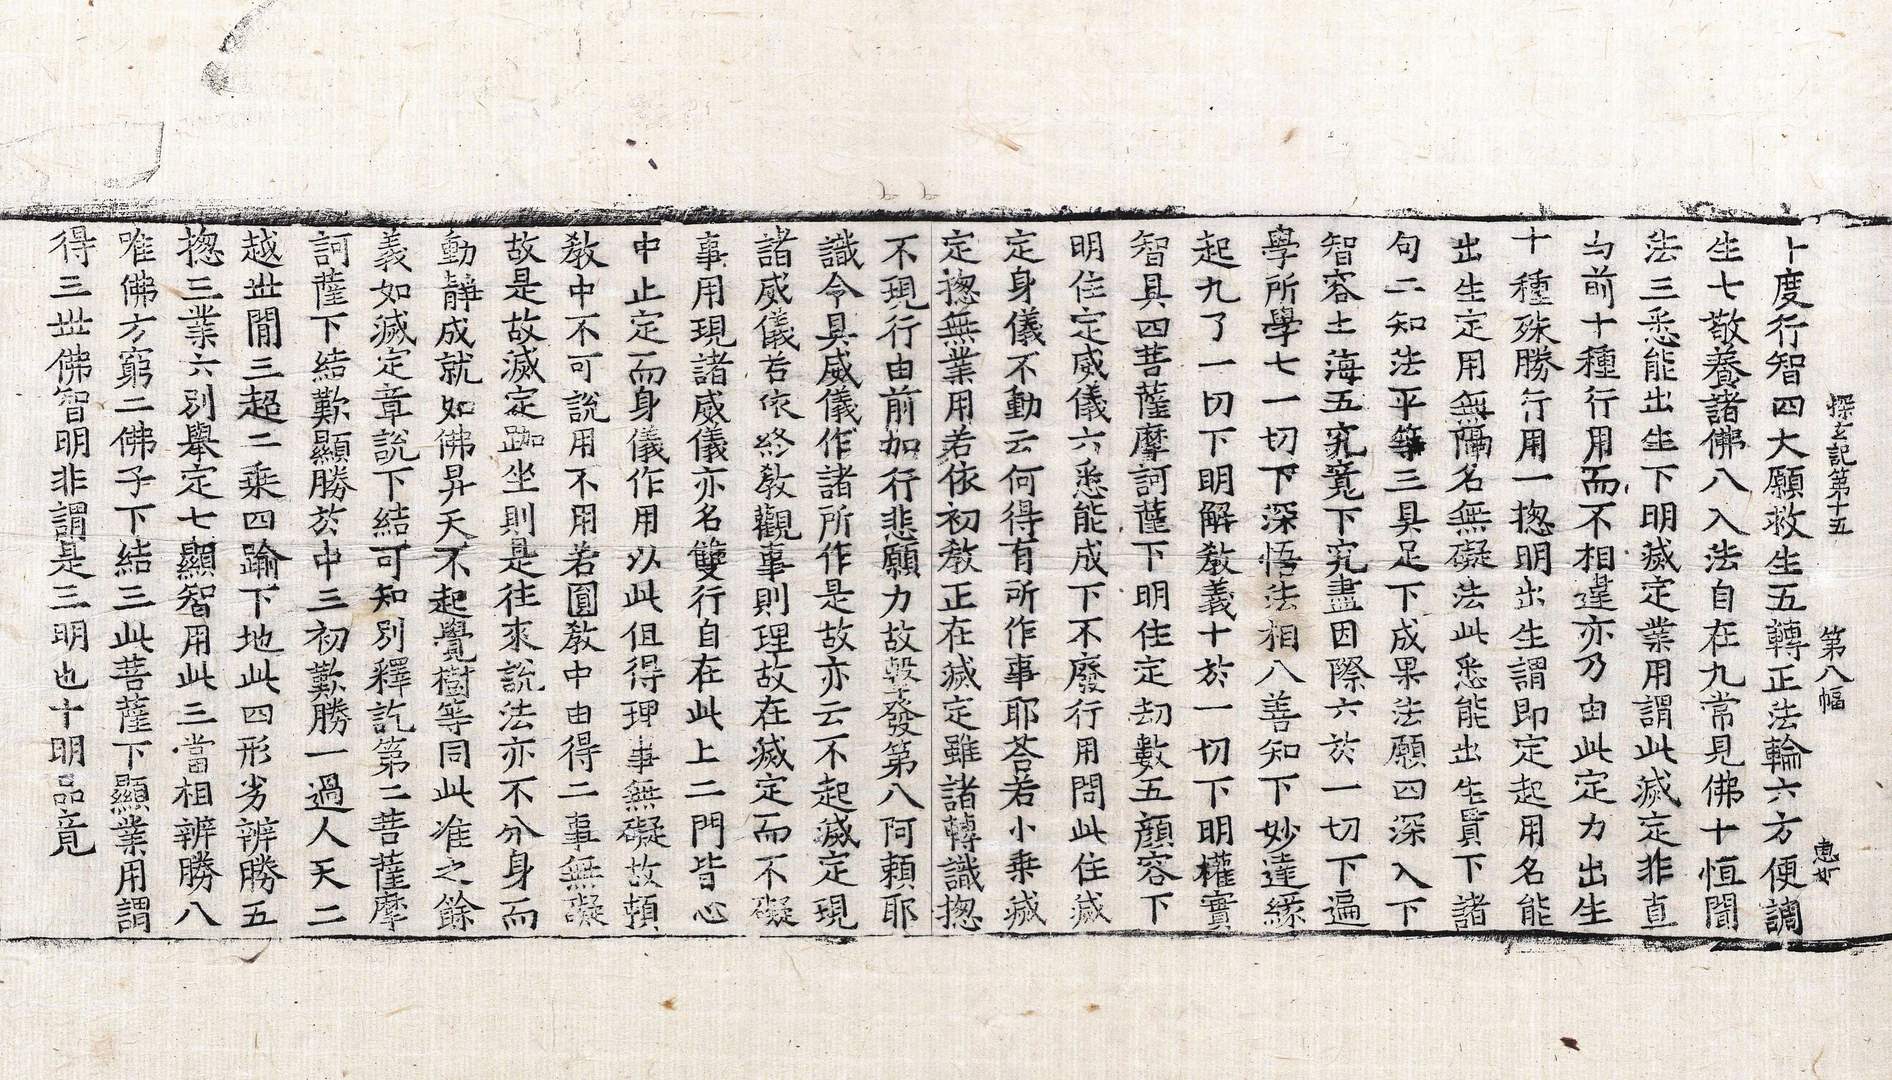 探玄記第十五 第八幅 惠如
十度行智四大願救生五轉正法輪六方便調
生七敬養諸佛八入法自在九常見佛十恒聞
法三悉能出生下明滅定業用謂此滅定非直
与前十種行用而不相違亦乃由此定力出生
十種殊勝行用一揔明出生謂即定起用名能
出生定用無隔名無礙法此悉能出生賢下諸
句二知法平等三具足下成果法願四深入下
智容土海五究竟下究盡因際六於一切下遍
學所學七一切下深悟法相八善知下妙達緣
起九了一切下明解教義十於一切下明權實
智具四菩薩摩訶薩下明住定劫數五顔容下
明住定威儀六悉能成下不廢行用問此住滅
定身儀不動云何得有所作事耶荅若小乗滅
定揔無業用若依初教正在滅定雖諸轉識揔
不現行由前加行悲願力故擊發第八阿頼耶
識令具威儀作諸所作是故亦云不起滅定現
諸威儀若依終教觀事則理故在滅定而不礙
事用現諸威儀亦名雙行自在此上二門皆心
中止定而身儀作用以此但得理事無礙故頓
教中不可説用不用若圓教中由得二事無礙
故是故滅定跏坐則是往來説法亦不分身而
動靜成就如佛昇天不起覺樹等同此准之餘
義如滅定章説下結可知別釋訖第二菩薩摩
訶薩下結歎顯勝於中三初歎勝一過人天二
越世間三超二乗四踰下地此四形劣辨勝五
揔三業六別舉定七顯智用此三當相辨勝八
唯佛方窮二佛子下結三此菩薩下顯業用謂
得三世佛智明非謂是三明也十明品竟